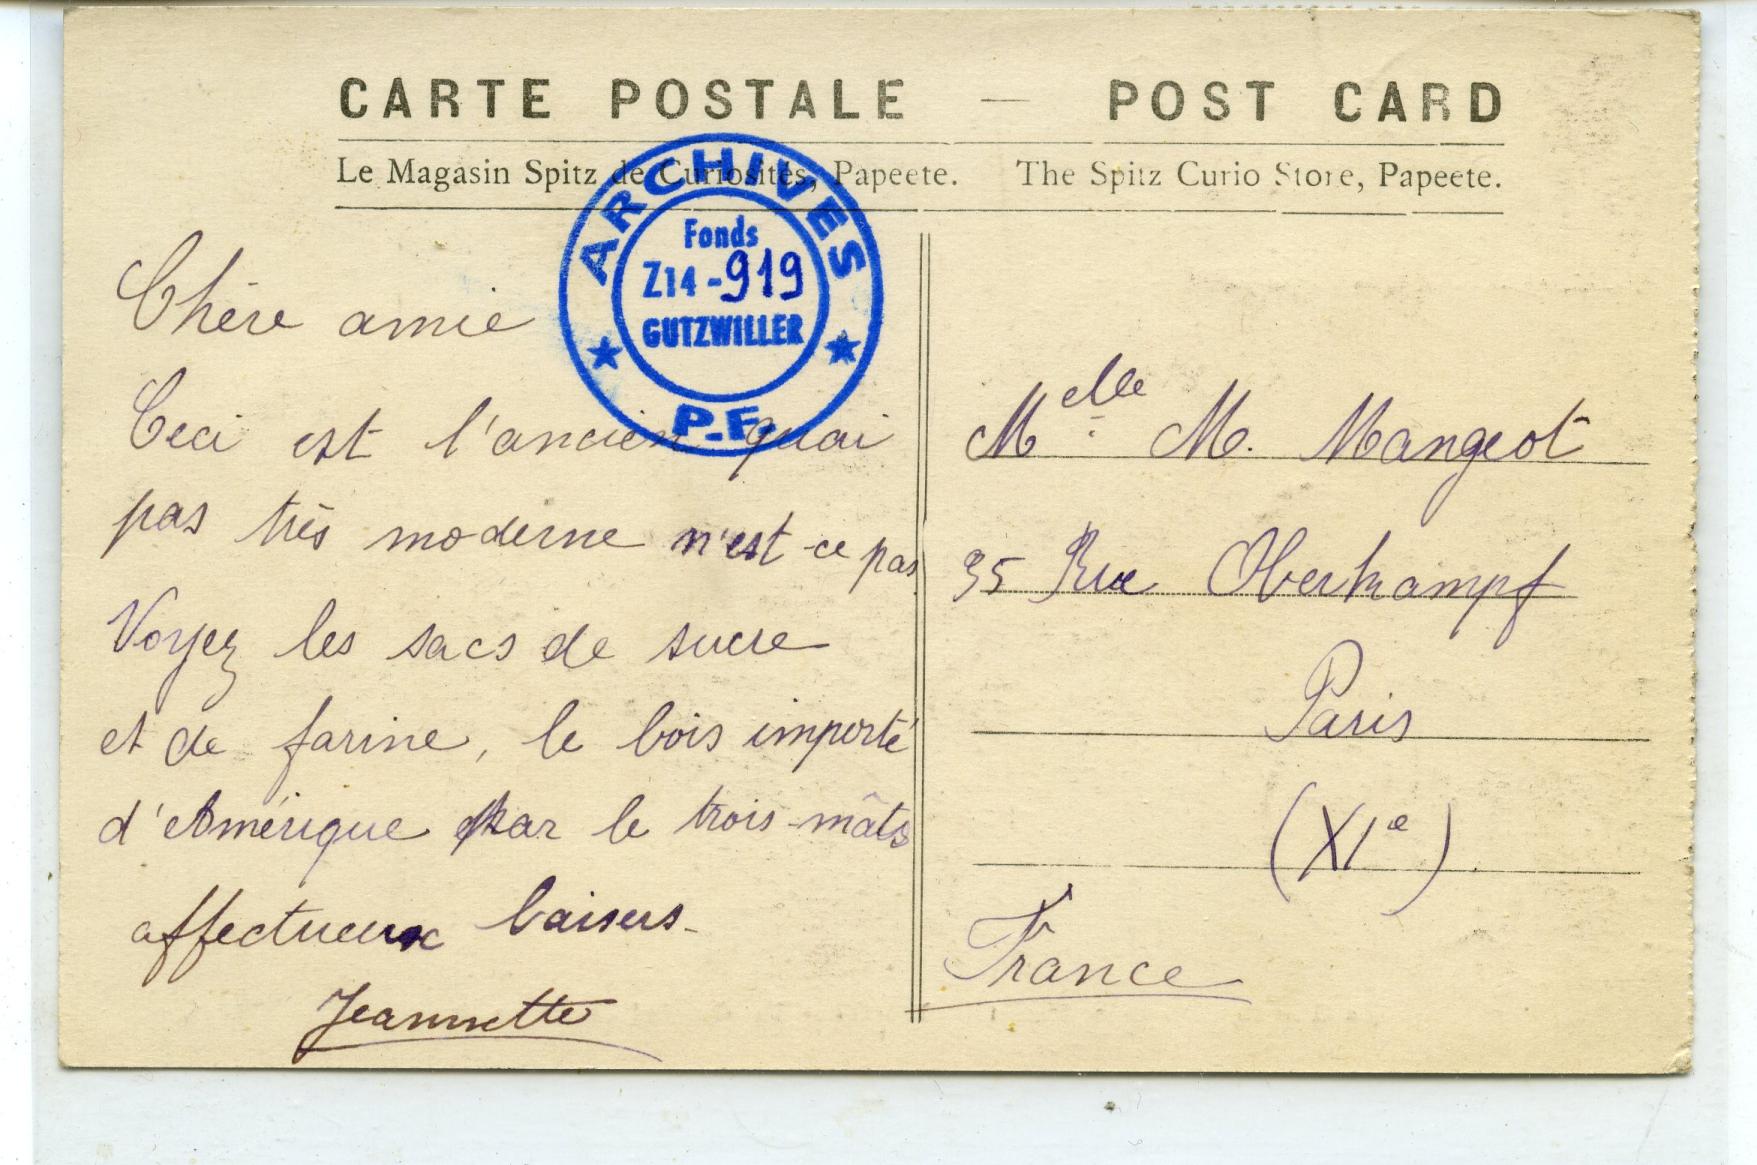 CARTE POSTALE — POST CARD
Le Magasin Spitz de Curiosités, Papeete. The Spitz Curio Store, Papeete.
ARCHIVES
Fonds
Z14-919
GUTZWILLER
P.F.
Chère amie
Ceci est l'ancien quai
pas très moderne n'est-ce pas
Voyez les sacs de sucre
et de farine, le bois importé
d'Amérique par le trois-mâts
affectueux baisers.
Jeannette
Melle M. Mangeot
95 Rue Oberkampf
Paris
(XIe)
France